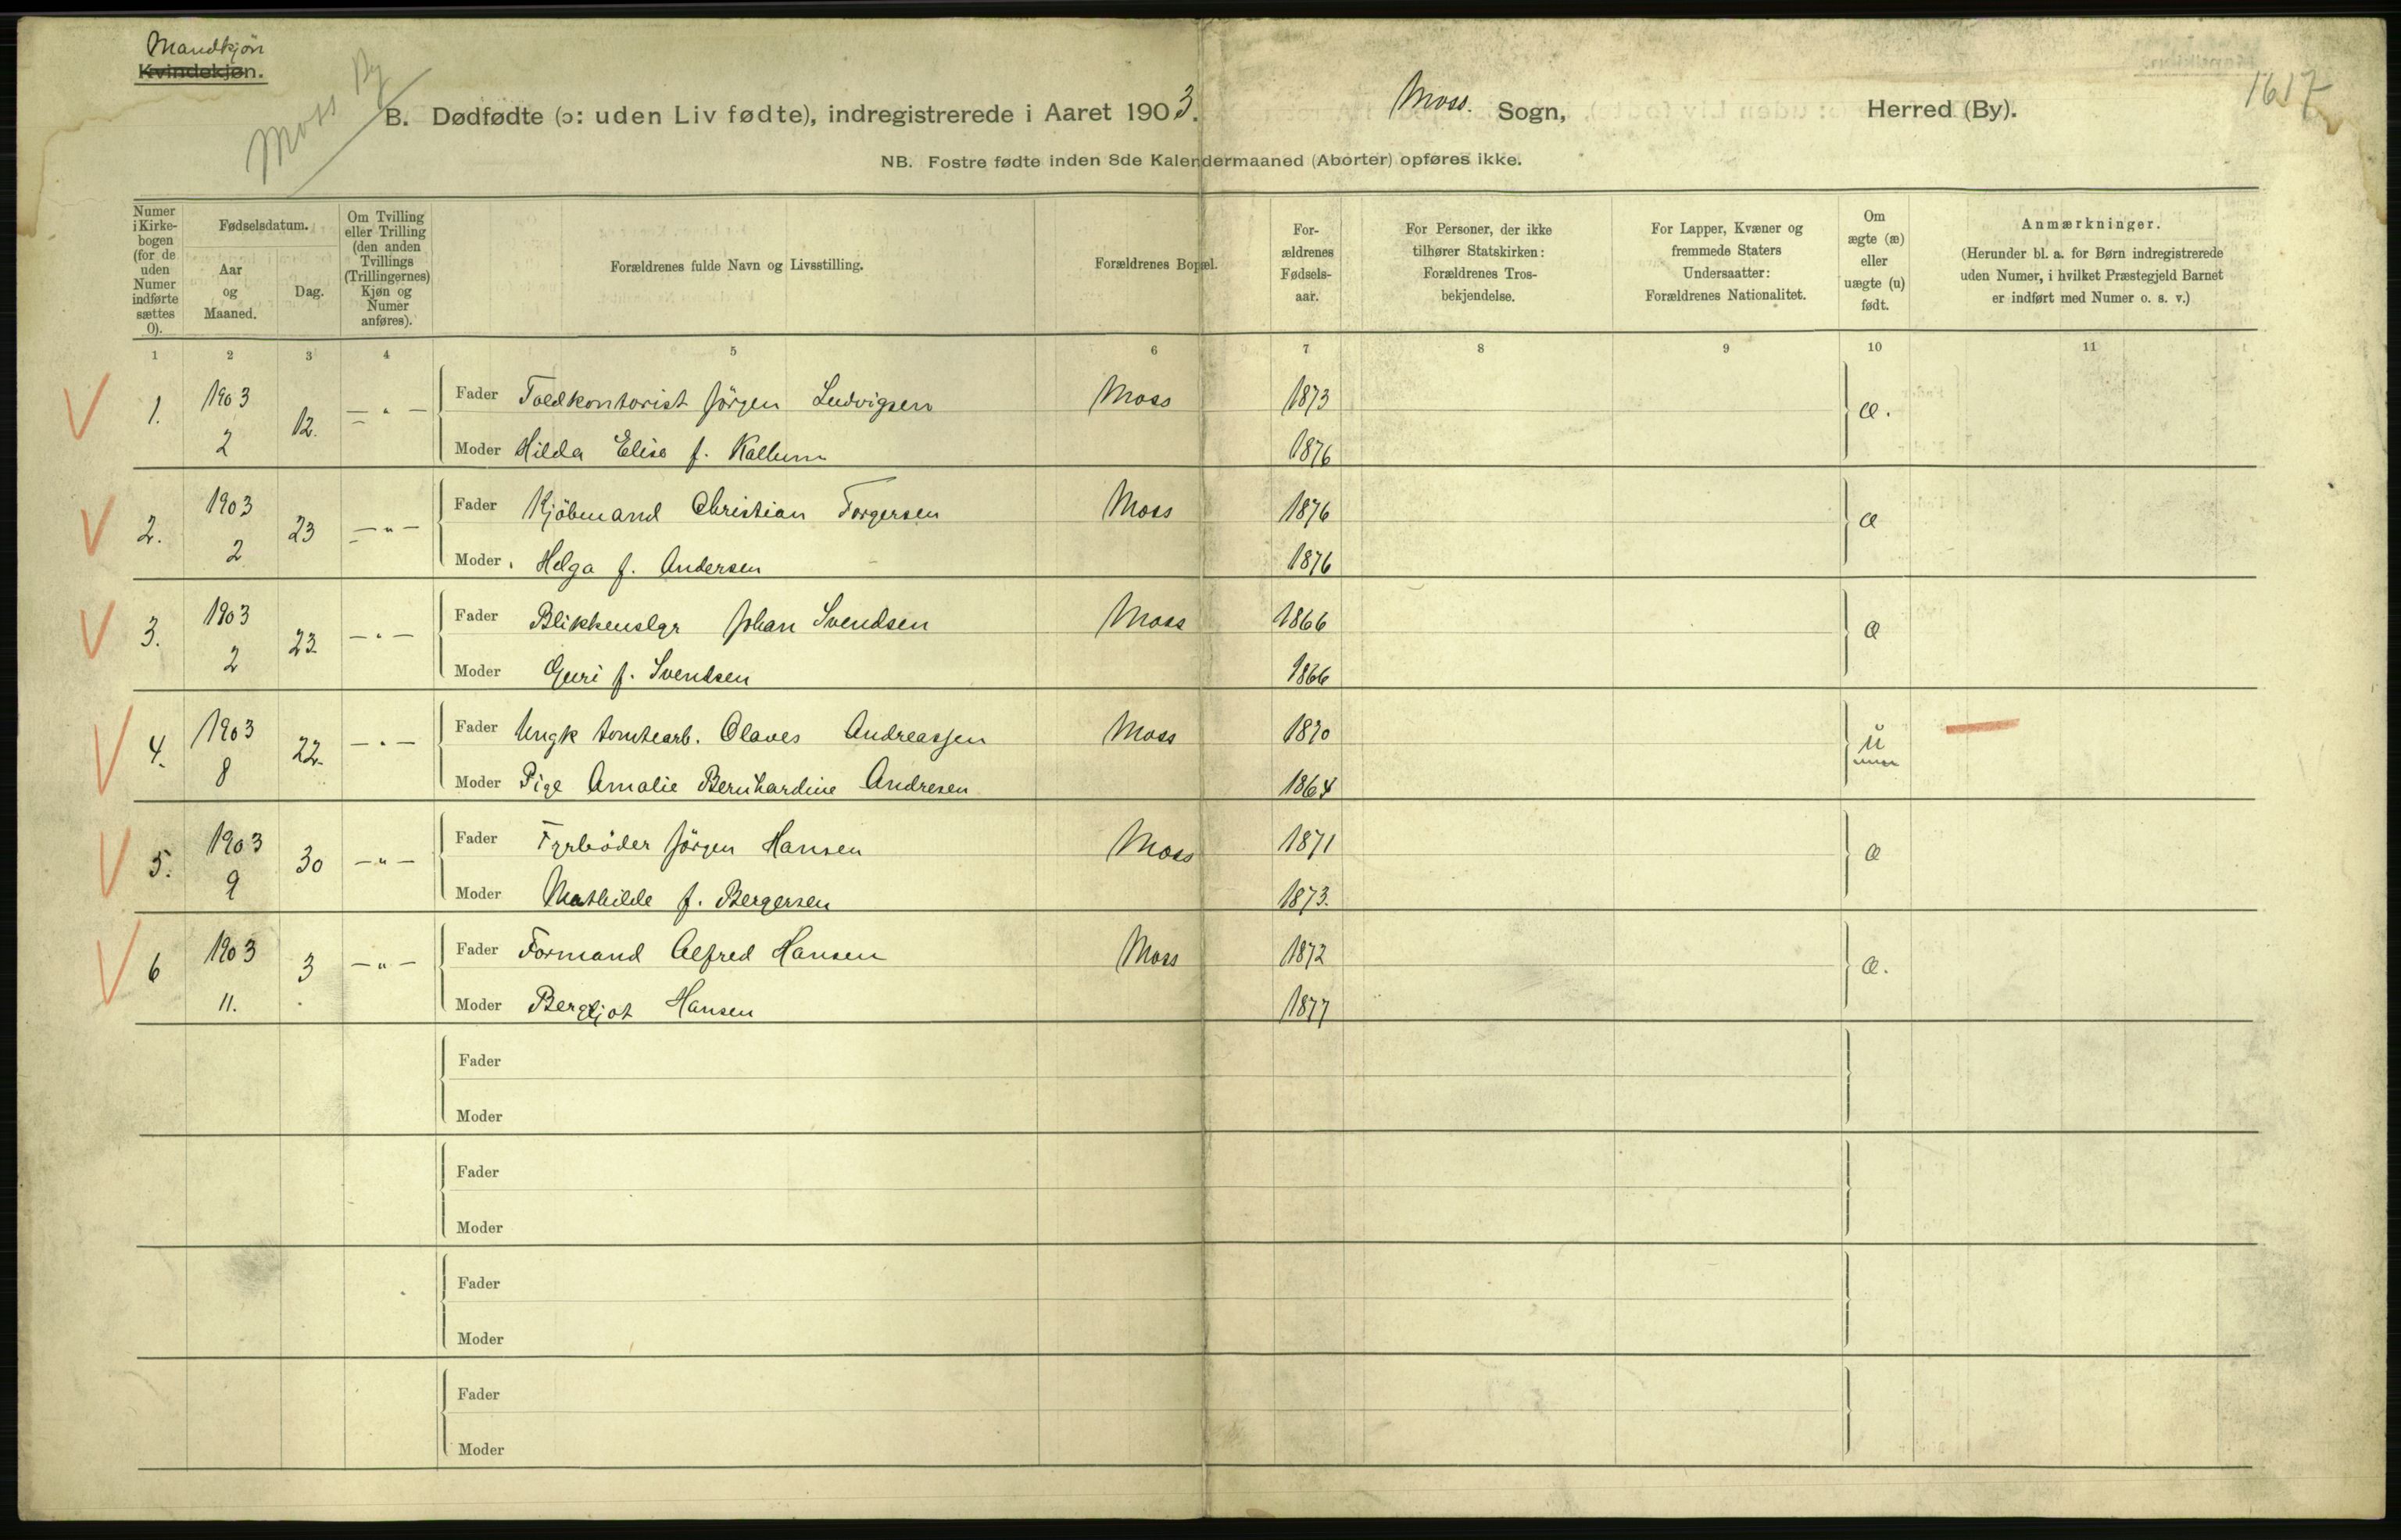 Mandkjøn
Kvindekjøn.
Moss By
1617
B. Dødfødte (ɔ: uden Liv fødte), indregistrerede i Aaret 1903. Moss. Sogn, Herred (By).
NB. Fostre fødte inden 8de Kalendermaaned (Aborter) opføres ikke.
Numer i Kirke-bogen (for de uden Numer indførte sættes 0).
Fødselsdatum.
Aar og Maaned.
Dag.
Om Tvilling eller Trilling (den anden Tvillings (Trillingernes) Kjøn og Numer anføres).
Forældrenes fulde Navn og Livsstilling.
Forældrenes Bopæl.
For-ældrenes Fødsels-aar.
For Personer, der ikke tilhører Statskirken: Forældrenes Tros-bekjendelse.
For Lapper, Kvæner og fremmede Staters Undersaatter: Forældrenes Nationalitet.
Om ægte (æ) eller uægte (u) født.
Anmærkninger.
(Herunder bl. a. for Børn indregistrerede uden Numer, i hvilket Præstegjeld Barnet er indført med Numer o. s. v.)
1 2 3 4 5 6 7 8 9 10 11
1. 1903 2 12. — " — Fader Toldkontorist Jörgen Ludvigsen Moss 1873 æ.
Moder Hilda Elise f. Kallum 1876
2. 1903 2 23 — " — Fader Kjöbmand Christian Torgersen Moss 1876 æ
Moder Helga f. Andersen 1876
3. 1903 2 23. — " — Fader Blikkenslgr Johan Svendsen Moss 1866 æ
Moder Guri f. Svendsen 1866
4. 1903 8 22. — " — Fader Ungk tomtearb. Olaves Andreassen Moss 1870 u
Moder Pige Amalie Bernhardine Andresen 1864
5. 1903 9 30 — " — Fader Fyrböder Jörgen Hansen Moss 1871 æ
Moder Mathilde f. Bergersen 1873.
6 1903 11. 3 — " — Fader Formand Alfred Hansen Moss 1872 æ.
Moder Bergljot Hansen 1877
Fader
Moder
Fader
Moder
Fader
Moder
Fader
Moder